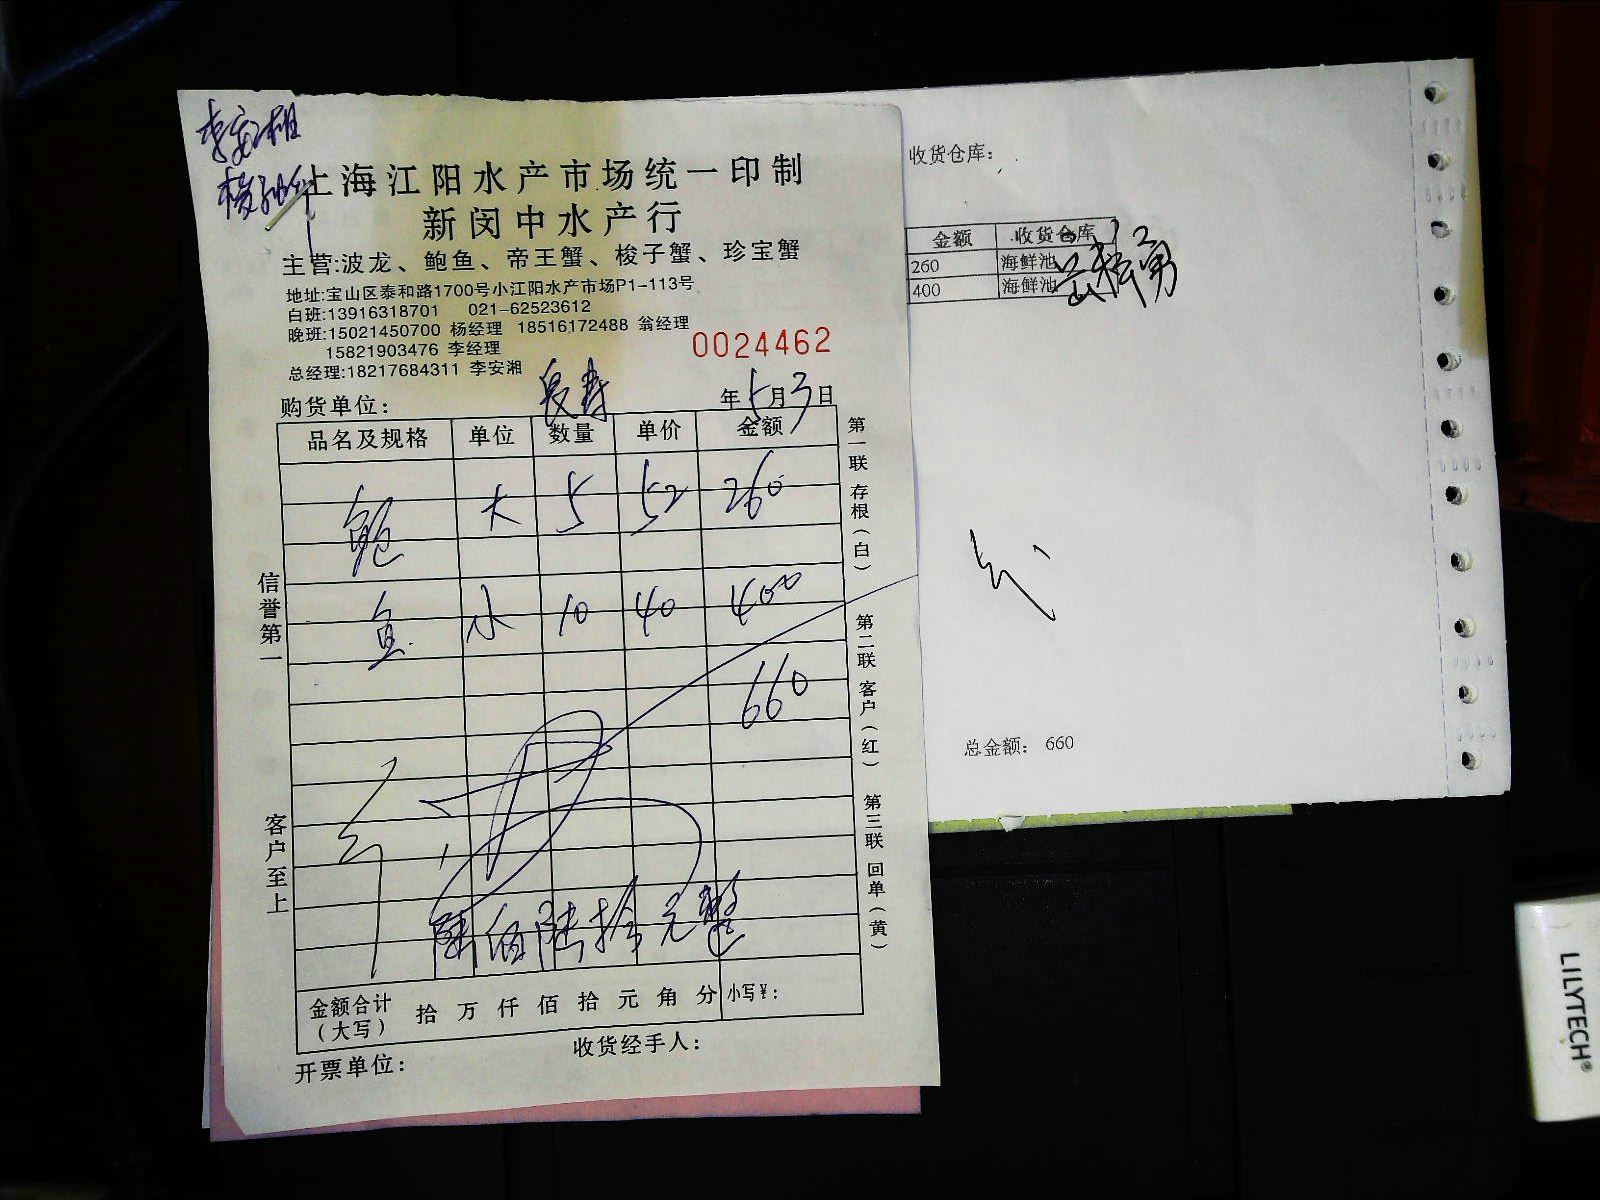 上海江阳水产市场统一印制
新闵中水产行
主营:波龙、鲍鱼、帝王蟹、梭子蟹、珍宝蟹
地址:宝山区泰和路1700号小江阳水产市场P1-113号
白班:13916318701 021-62523612
晚班:15021450700 杨经理 18516172488 翁经理
15821903476 李经理
总经理:18217684311 李安湘
0024462
购货单位: 长寿 年5月3日
品名及规格 单位 数量 单价 金额
鲍 大 5 52 260
鱼 小 10 40 400
660
陆佰陆拾元整
金额合计 拾 万 仟 佰 拾 元 角 分 小写¥:
(大写)
开票单位: 收货经手人:
信誉第一
客户至上
第一联 存根(白)
第二联 客户(红)
第三联 回单(黄)
收货仓库:
金额 收货仓库
260 海鲜池
400 海鲜池
总金额: 660
LILYTECH®